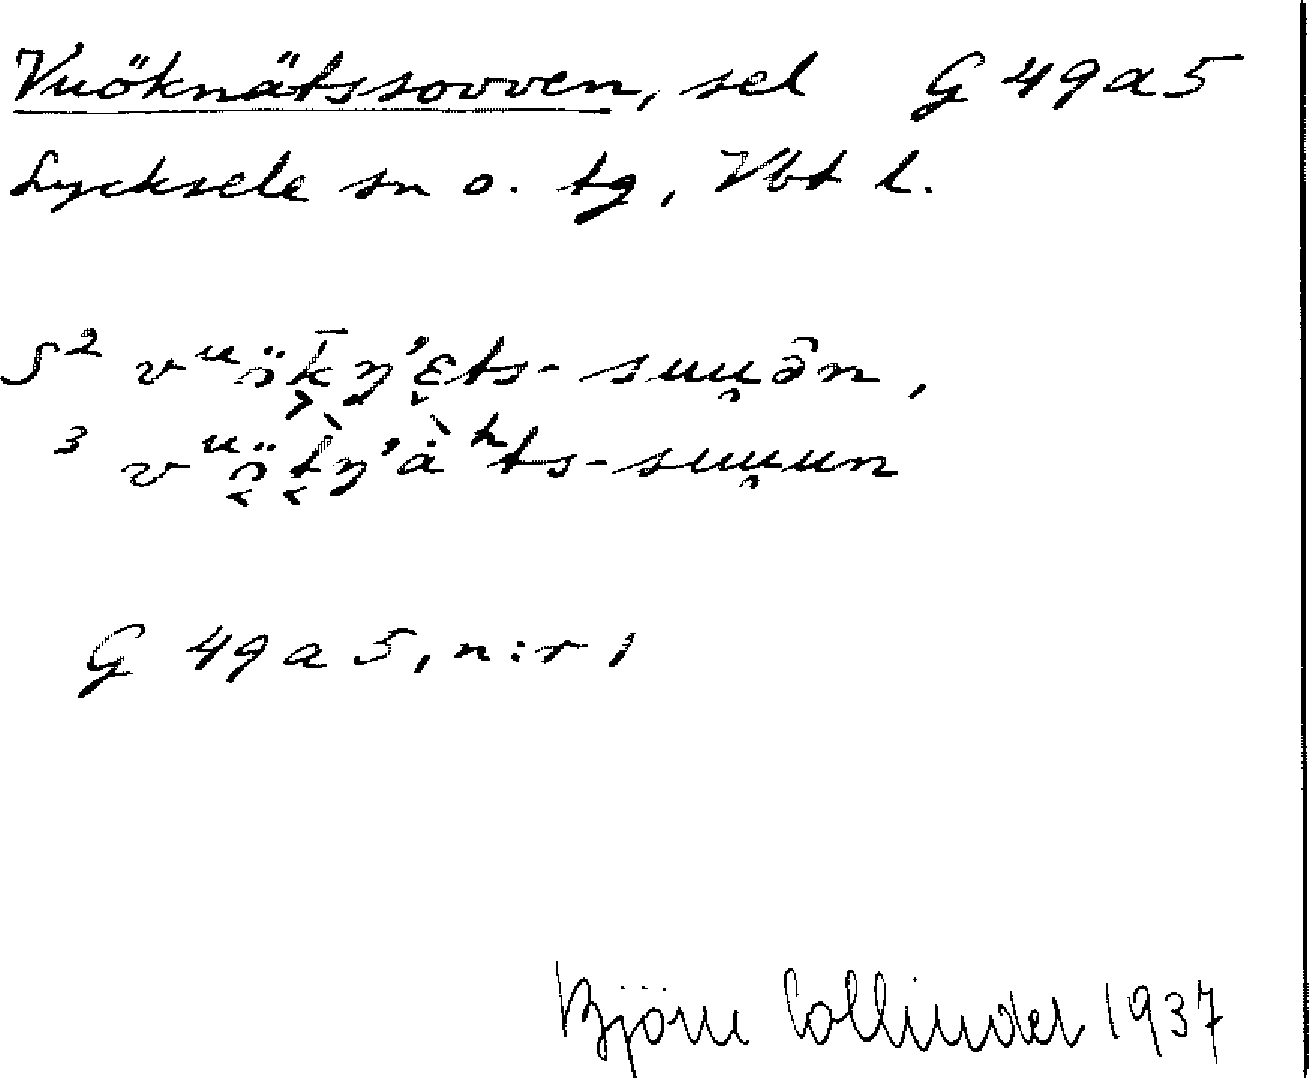 Vuöknätssovven, sel G 49 a 5
Lycksele sn o. tg, Vbt l.
S² vᵘök̄ŋ'ɛts- suu̯ə̂n,
³ vᵘötŋ'àʰts-suu̯un
G 49 a 5, n:r 1
Björn Collinder 1937